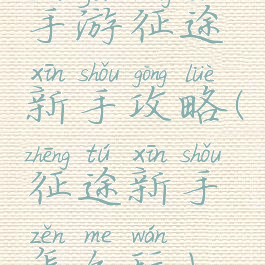 手游征途
xīn shǒu gōng lüè
新手攻略(
zhēng tú xīn shǒu
征途新手
zěn me wán
怎么玩)